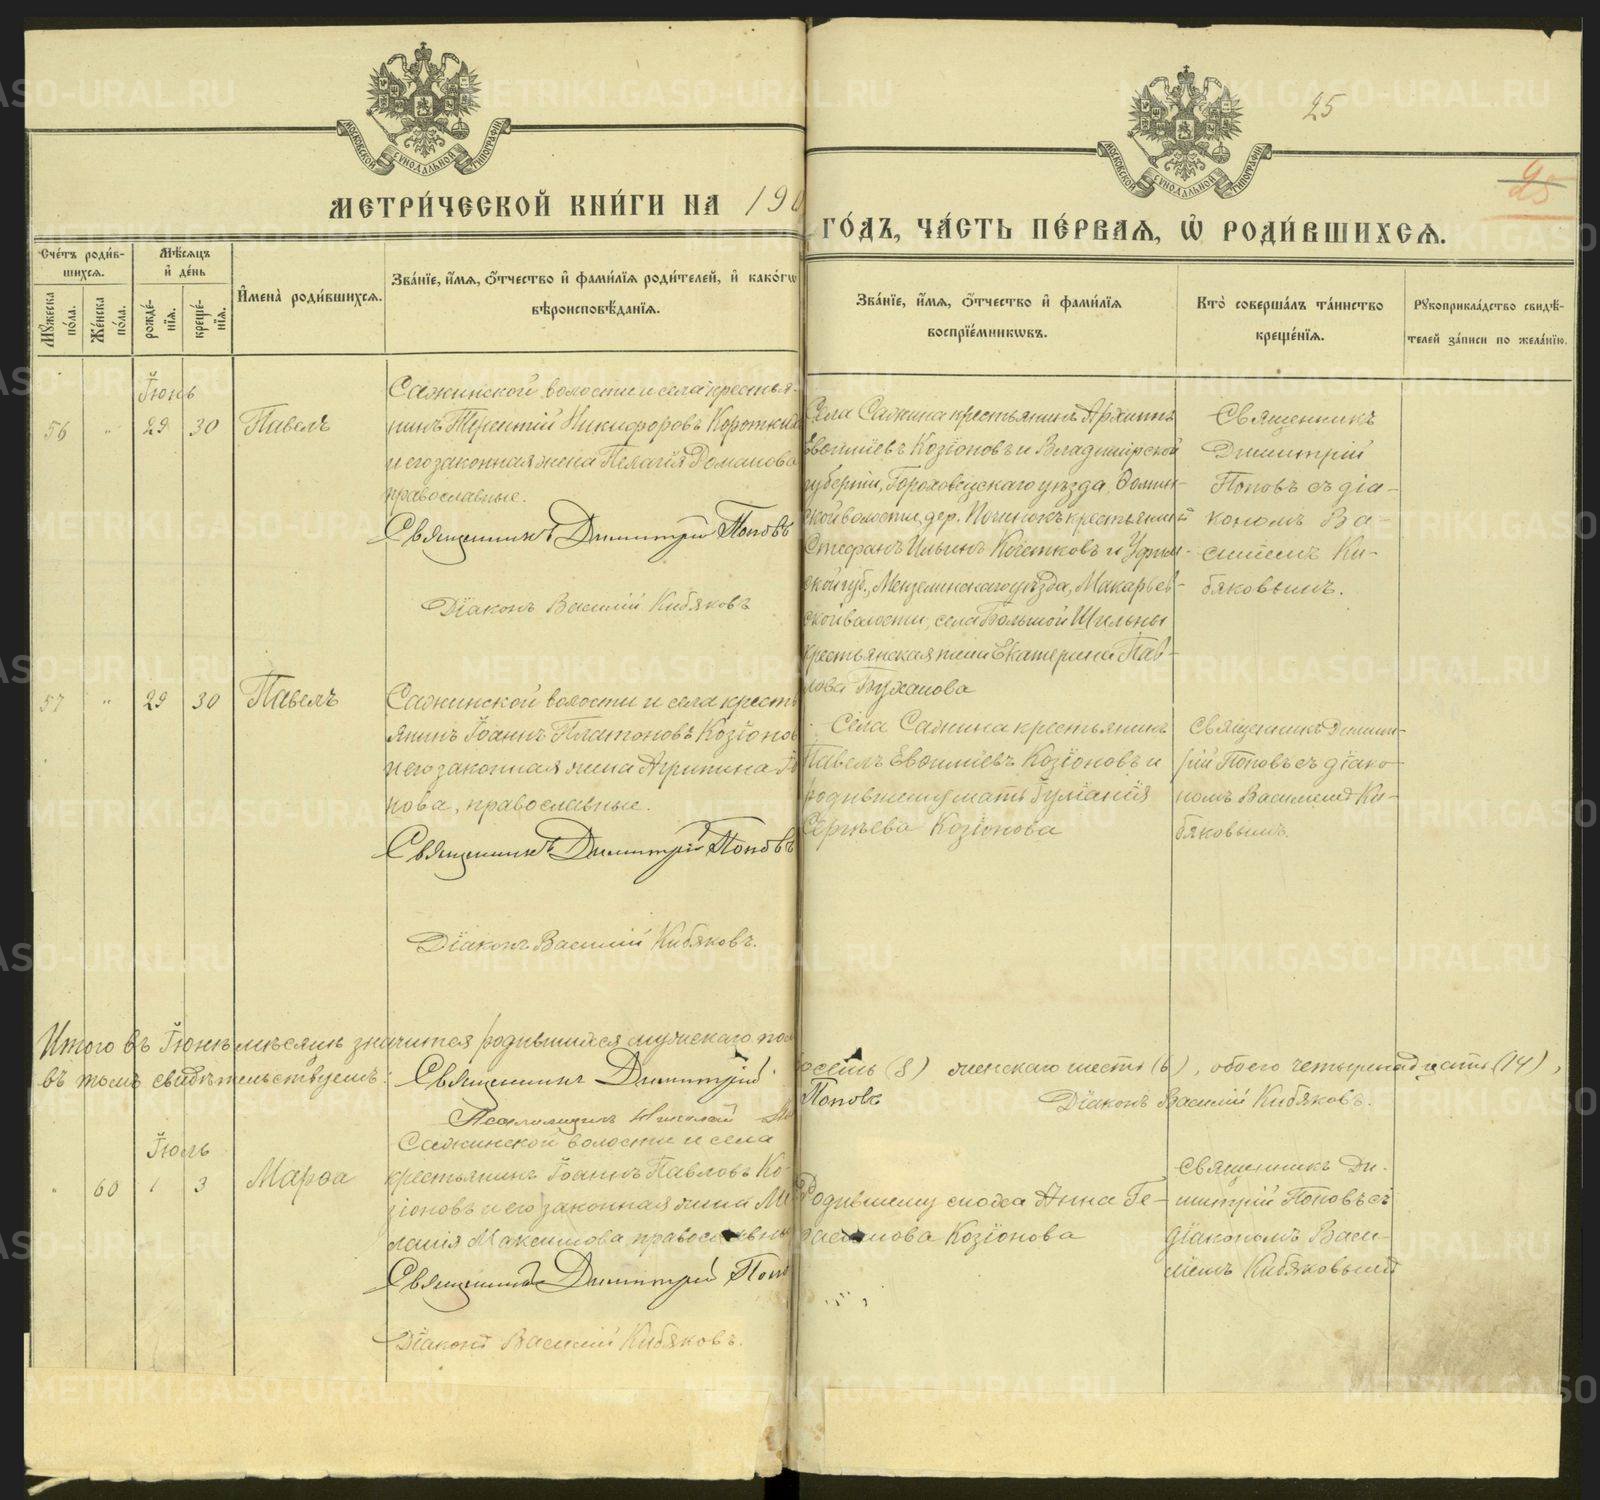 25
25
МОСКОВСКОЙ СѴНОДАЛЬНОЙ ТИПОГРАФІИ
МОСКОВСКОЙ СѴНОДАЛЬНОЙ ТИПОГРАФІИ
МЕТРИ́ЧЕСКОЙ КНИ́ГИ НА 190
ГО́ДЪ, ЧА́СТЬ ПЕ́РВАѦ, Ѡ҆ РОДИ́ВШИХСѦ.
Сче́тъ роди́в-
шихсѧ.
Мѣ́сѧцъ
и҆ де́нь
Мꙋ́жеска по́ла.
Же́нска по́ла.
рожде́-
нїѧ.
креще́-
нїѧ.
И҆мена̀ роди́вшихсѧ.
Зва́нїе, и҆́мѧ, ѻ҆́тчество и҆ фами́лїѧ роди́телей, и҆ како́гѡ
вѣроисповѣ́данїѧ.
Зва́нїе, и҆́мѧ, ѻ҆́тчество и҆ фами́лїѧ
воспрїе́мникѡвъ.
Кто̀ соверша́лъ та́инство
креще́нїѧ.
Рꙋкоприкла́дство свидѣ́-
телей за́писи по жела́нїю.
Іюнь
56 " 29 30 Павелъ
Сажинской волости и села крестья-
нинъ Терентій Никифоровъ Коротких
и его законная жена Пелагія Романова
православные.
Священникъ Димитрій Поповъ
Діаконъ Василій Кибяковъ
Села Сажина крестьянинъ Архипъ
Евѳиміевъ Козіоновъ и Владимірской
губерніи, Гороховецскаго уѣзда,
ской волости, дер. Починокъ крестьянинъ
Стефанъ Ильинъ Кочетковъ и Уфим-
ской губ., Мензелинскаго уѣзда, Макарьев-
ской волости, села Большой Шильны
крестьянская Екатерина Пав-
лова
Священникъ
Димитрій
Поповъ съ діа-
кономъ Ва-
силіемъ Ки-
бяковымъ.
57 " 29 30 Павелъ
Сажинской волости и села кресть
янинъ Іоаннъ Платоновъ Козіонов
и его законная жена Агрипина
нова, православные.
Священникъ Димитрій Поповъ
Діаконъ Василій Кибяковъ.
Села Сажина крестьянинъ
Павелъ Евѳиміевъ Козіоновъ и
родившему мать Іуліанія
Сергѣева Козіонова
Священникъ Димит-
рій Поповъ съ діако-
номъ Василіемъ Ки-
бяковымъ.
Итого въ Іюнѣ мѣсяцѣ значится родившихся мужескаго пол
восемь (8) женскаго шесть (6), обоего четырнадцать (14),
въ томъ свидѣтельствуемъ: Священникъ Димитрій
Поповъ
Діаконъ Василій Кибяковъ.
Псаломщикъ Николай
Іюль
" 60 1 3 Марѳа
Сажинской волости и села
крестьянинъ Іоаннъ Павловъ Ко-
зіоновъ и его законная жена Ме
ланія Максимова, православны
Священникъ Димитрій Попов
Діаконъ Василій Кибяковъ.
Родившему сноха Анна Ге-
расимова Козіонова
Священникъ Ди-
митрій Поповъ съ
діакономъ Васи-
ліемъ Кибяковымъ
METRIKI.GASO-URAL.RU